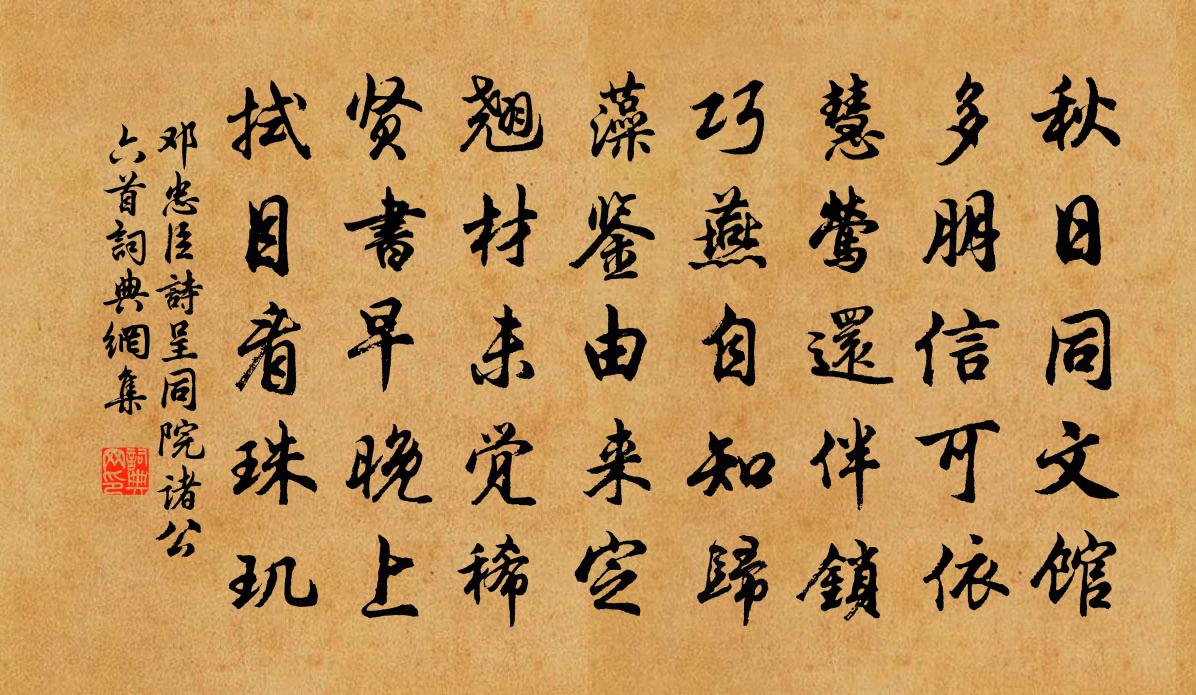 秋日同文馆
多朋信可依
慧莺還伴鎖
巧燕自知歸
藻鉴由来定
翘材未觉稀
贤書早晚上
拭目看珠玑
邓忠臣詩呈同院诸公
六首詞典網集
詞典網印